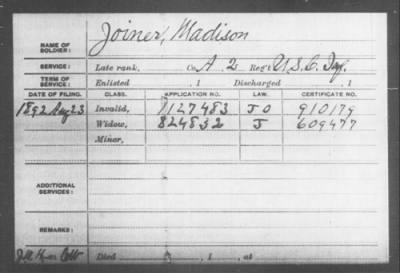 NAME OF SOLDIER: Joiner, Madison
SERVICE: Late rank, Co. A. 2 Reg't U.S.C. Inf.
TERM OF SERVICE: Enlisted , 1 Discharged , 1
DATE OF FILING. CLASS. APPLICATION NO. LAW. CERTIFICATE NO.
1892 Aug 23 Invalid, 1127483 J O 910179
Widow, 824832 J 609477
Minor,
ADDITIONAL SERVICES:
REMARKS:
Died , 1 , at